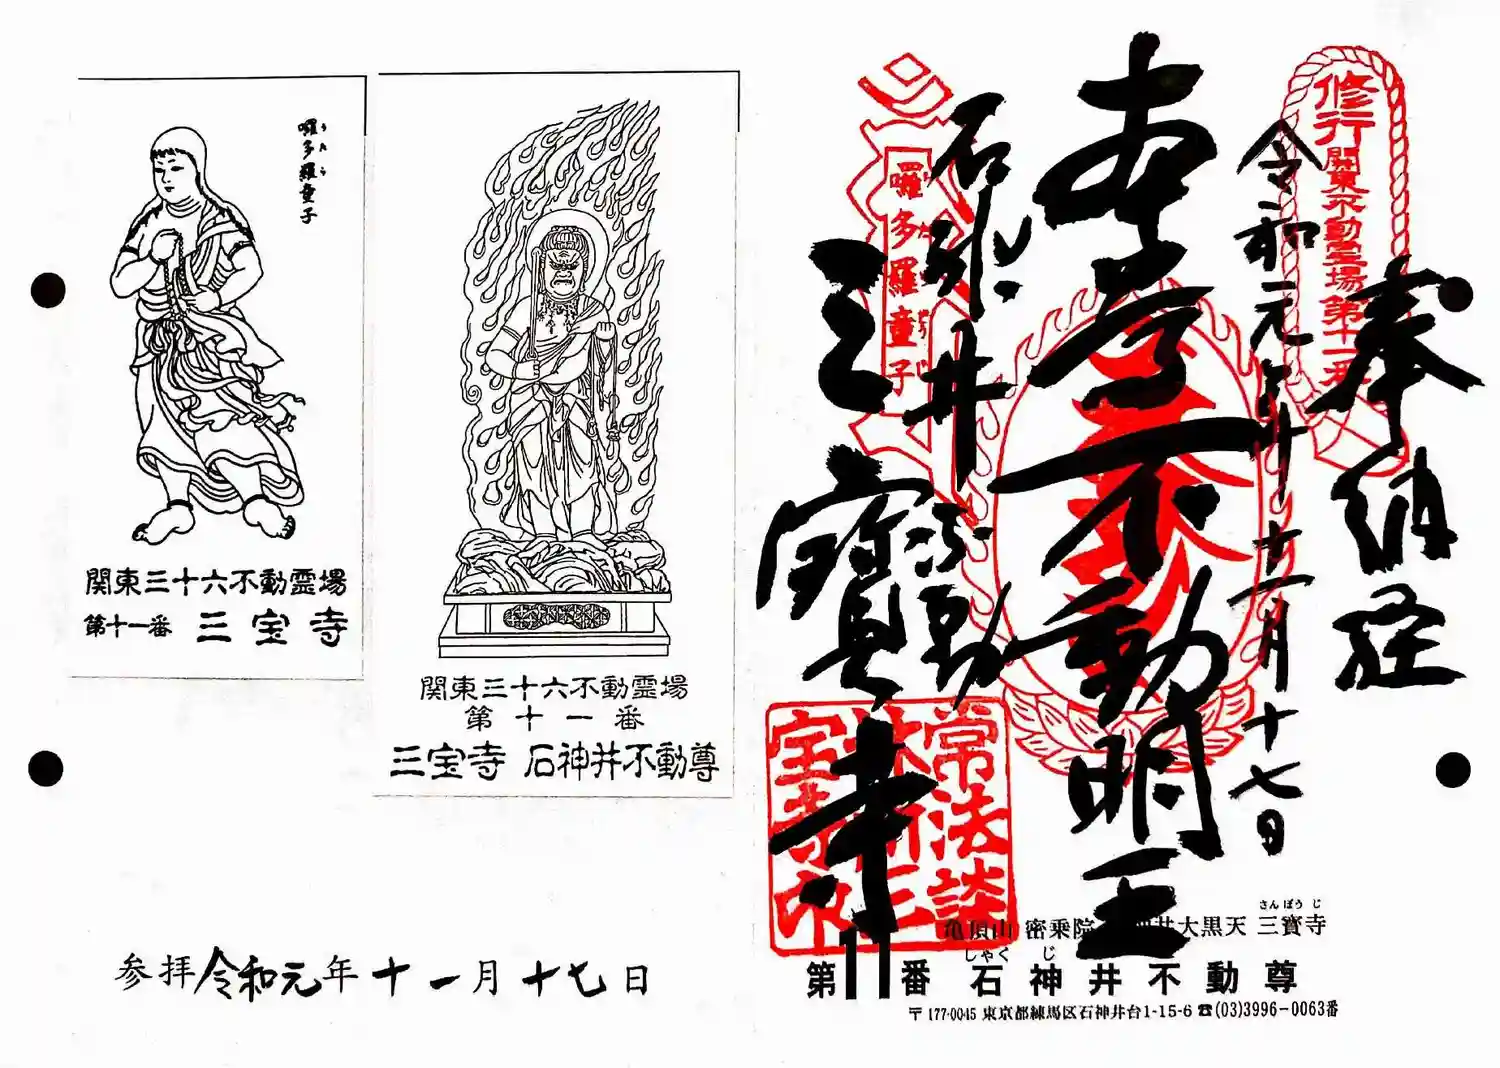 囉多羅童子
うたら
関東三十六不動霊場
第十一番 三宝寺
関東三十六不動霊場
第十一番
三宝寺 石神井不動尊
参拝令和元年十一月十七日
奉納経
修行関東不動霊場第十一番
令和元年十一月十七日
不動明王
石神井
不動
囉多羅童子
三寳寺
さんぽうじ
亀頂山 密乗院 井大黒天 三寳寺
しゃくじ
第11番 石神井不動尊
〒177-0045 東京都練馬区石神井台1-15-6 ☎(03)3996-0063番